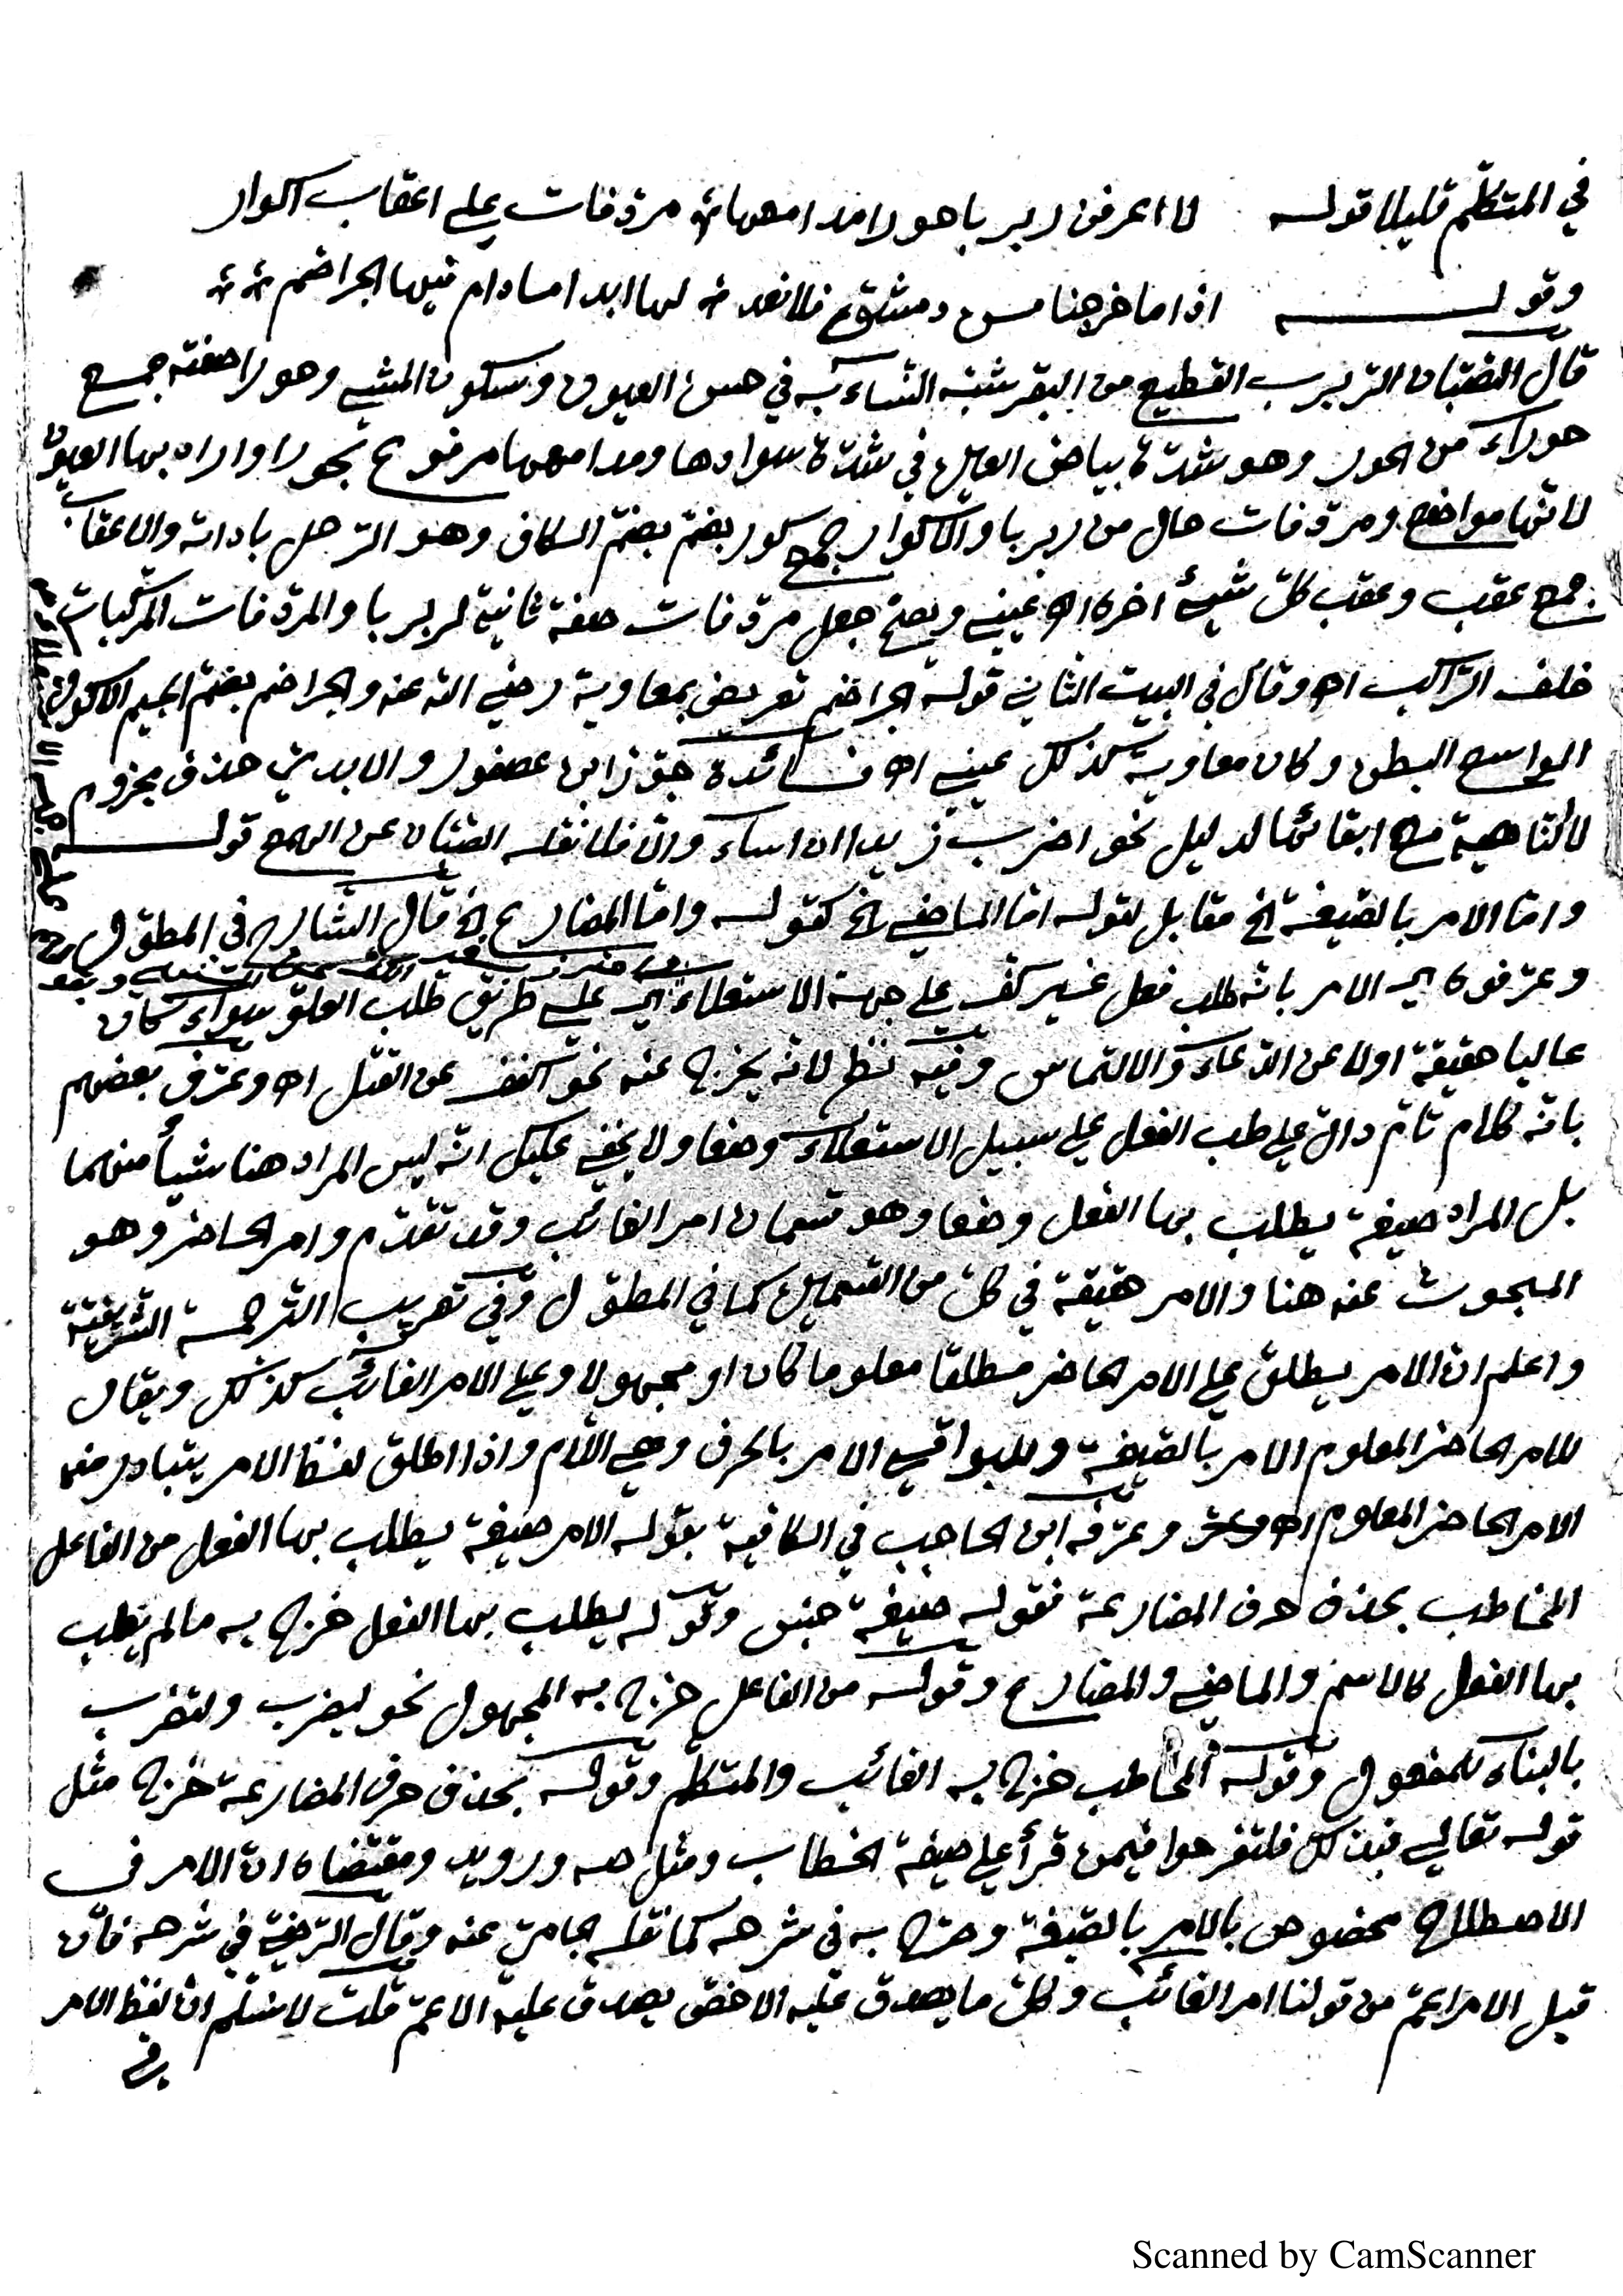 في المتكلّم قليلا قوله لا اعرفن ربربا حورا مدامعها ؞ مردّفات على اعقاب اكوار
وقولـــه اذا ما خرجنا من دمشق فلا نعد ؞ لها ابدا ما دام فيها الجراضم ؞ ؞
قال الصّبّان الرّبرب القطيع من البقر شبّه النّساء به في حسن العيون وسكون المشي وحورا صفته جمع
حوراء من الحور وهو شدّة بياض العين في شدّة سوادها ومدامعها مرفوع بحورا واراد بها العيون
لانّها مواضع ومردّفات حال من ربربا والاكوار جمع كور بضمّ بضمّ الكاف وهو الرّحل باداته والاعقاب
جمع عقب وعقب كلّ شيئ اخره اه عيني ويصحّ جعل مردّفات صفة ثانية لربربا والمردّفات المركّبات
خلف الرّاكب اه وقال في البيت الثاني قوله الجراضم تعريض بمعاوية رضي الله عنه والجراضم بضمّ الجيم الاكول
الواسع البطن وكان معاوية كذلك عيني اه فــائدة جوّز ابن عصفور والابدي حذف مجزوم
لا النّاهية مع ابقائها لدليل نحو اضرب زيدا ان اساء والّا فلا نقله الصّبّان عن الهمع قولــه
وامّا الامر بالصّيغة الخ مقابل لقوله امّا الماضي الخ كقوله وامّا المضارع الخ قال الشّارح في المطوّل
وعرّفوه اي الامر بانّه طلب فعل غير كفّ على جهة الاستعلاء اي على طريق طلب العلوّ سواء كان
عاليا حقيقة اولا عن الدّعاء والالتماس وفيه نظر لانّه يخرج عنه نحو اكفف عن القتل اه وعرّف بعضهم
بانّه كلام تامّ دالّ على طلب الفعل على سبيل الاستعلاء وضعا ولا يخفى عليك انّه ليس المراد هنا شيأ منهما
بل المراد صيغة يطلب بها الفعل وضعا وهو قسمان امر الغائب وقد تقدّم وامر الحاضر وهو
المبحوث عنه هنا والامر حقيقة في كلّ من القسمين كما في المطوّل وفي تعريب التّرجمة الشّريفيّة
واعلم انّ الامر يطلق على الامر الحاضر مطلقا معلوما كان او مجهولا وعلى الامر الغائب كذلك ويقال
للامر الحاضر المعلوم الامر بالصّيغة وللبواقي الامر بالحرف وهي اللّام واذا اطلق لفظ الامر يتبادر منها
الامر الحاضر المعلوم اه وعرّفه ابن الحاجب في الكافية بقوله الامر صيغة يطلب بها الفعل من الفاعل
المخاطب بحذف حرف المضارعة فقوله صيغة جنس وقوله يطلب بها الفعل خرج به ما لم يطلب
بها الفعل كالاسم والماضي والمضارع وقوله من الفاعل خرج به المجهول نحو ليضرب ولتضرب
بالبناء للمفعول وقوله المخاطب خرج به الغائب والمتكلّم وقوله بحذف حرف المضارعة خرج مثل
قوله تعالى فبذلك فلتفرحوا فيمن قرأ على صيغة الخطاب ومثل صه ورويد ومقتضاه انّ الامر في
الاصطلاح مخصوص بالامر بالصّيغة وصرّح به في شرحه كما نقله الجامي عنه وقال الرّضي في شرحه فان
قيل الامر اعمّ من قولنا امر الغائب وكلّ ما يصدق عليه الاخصّ يصدق عليه الاعمّ قلت لا نسلّم انّ لفظ الامر
في
Scanned by CamScanner